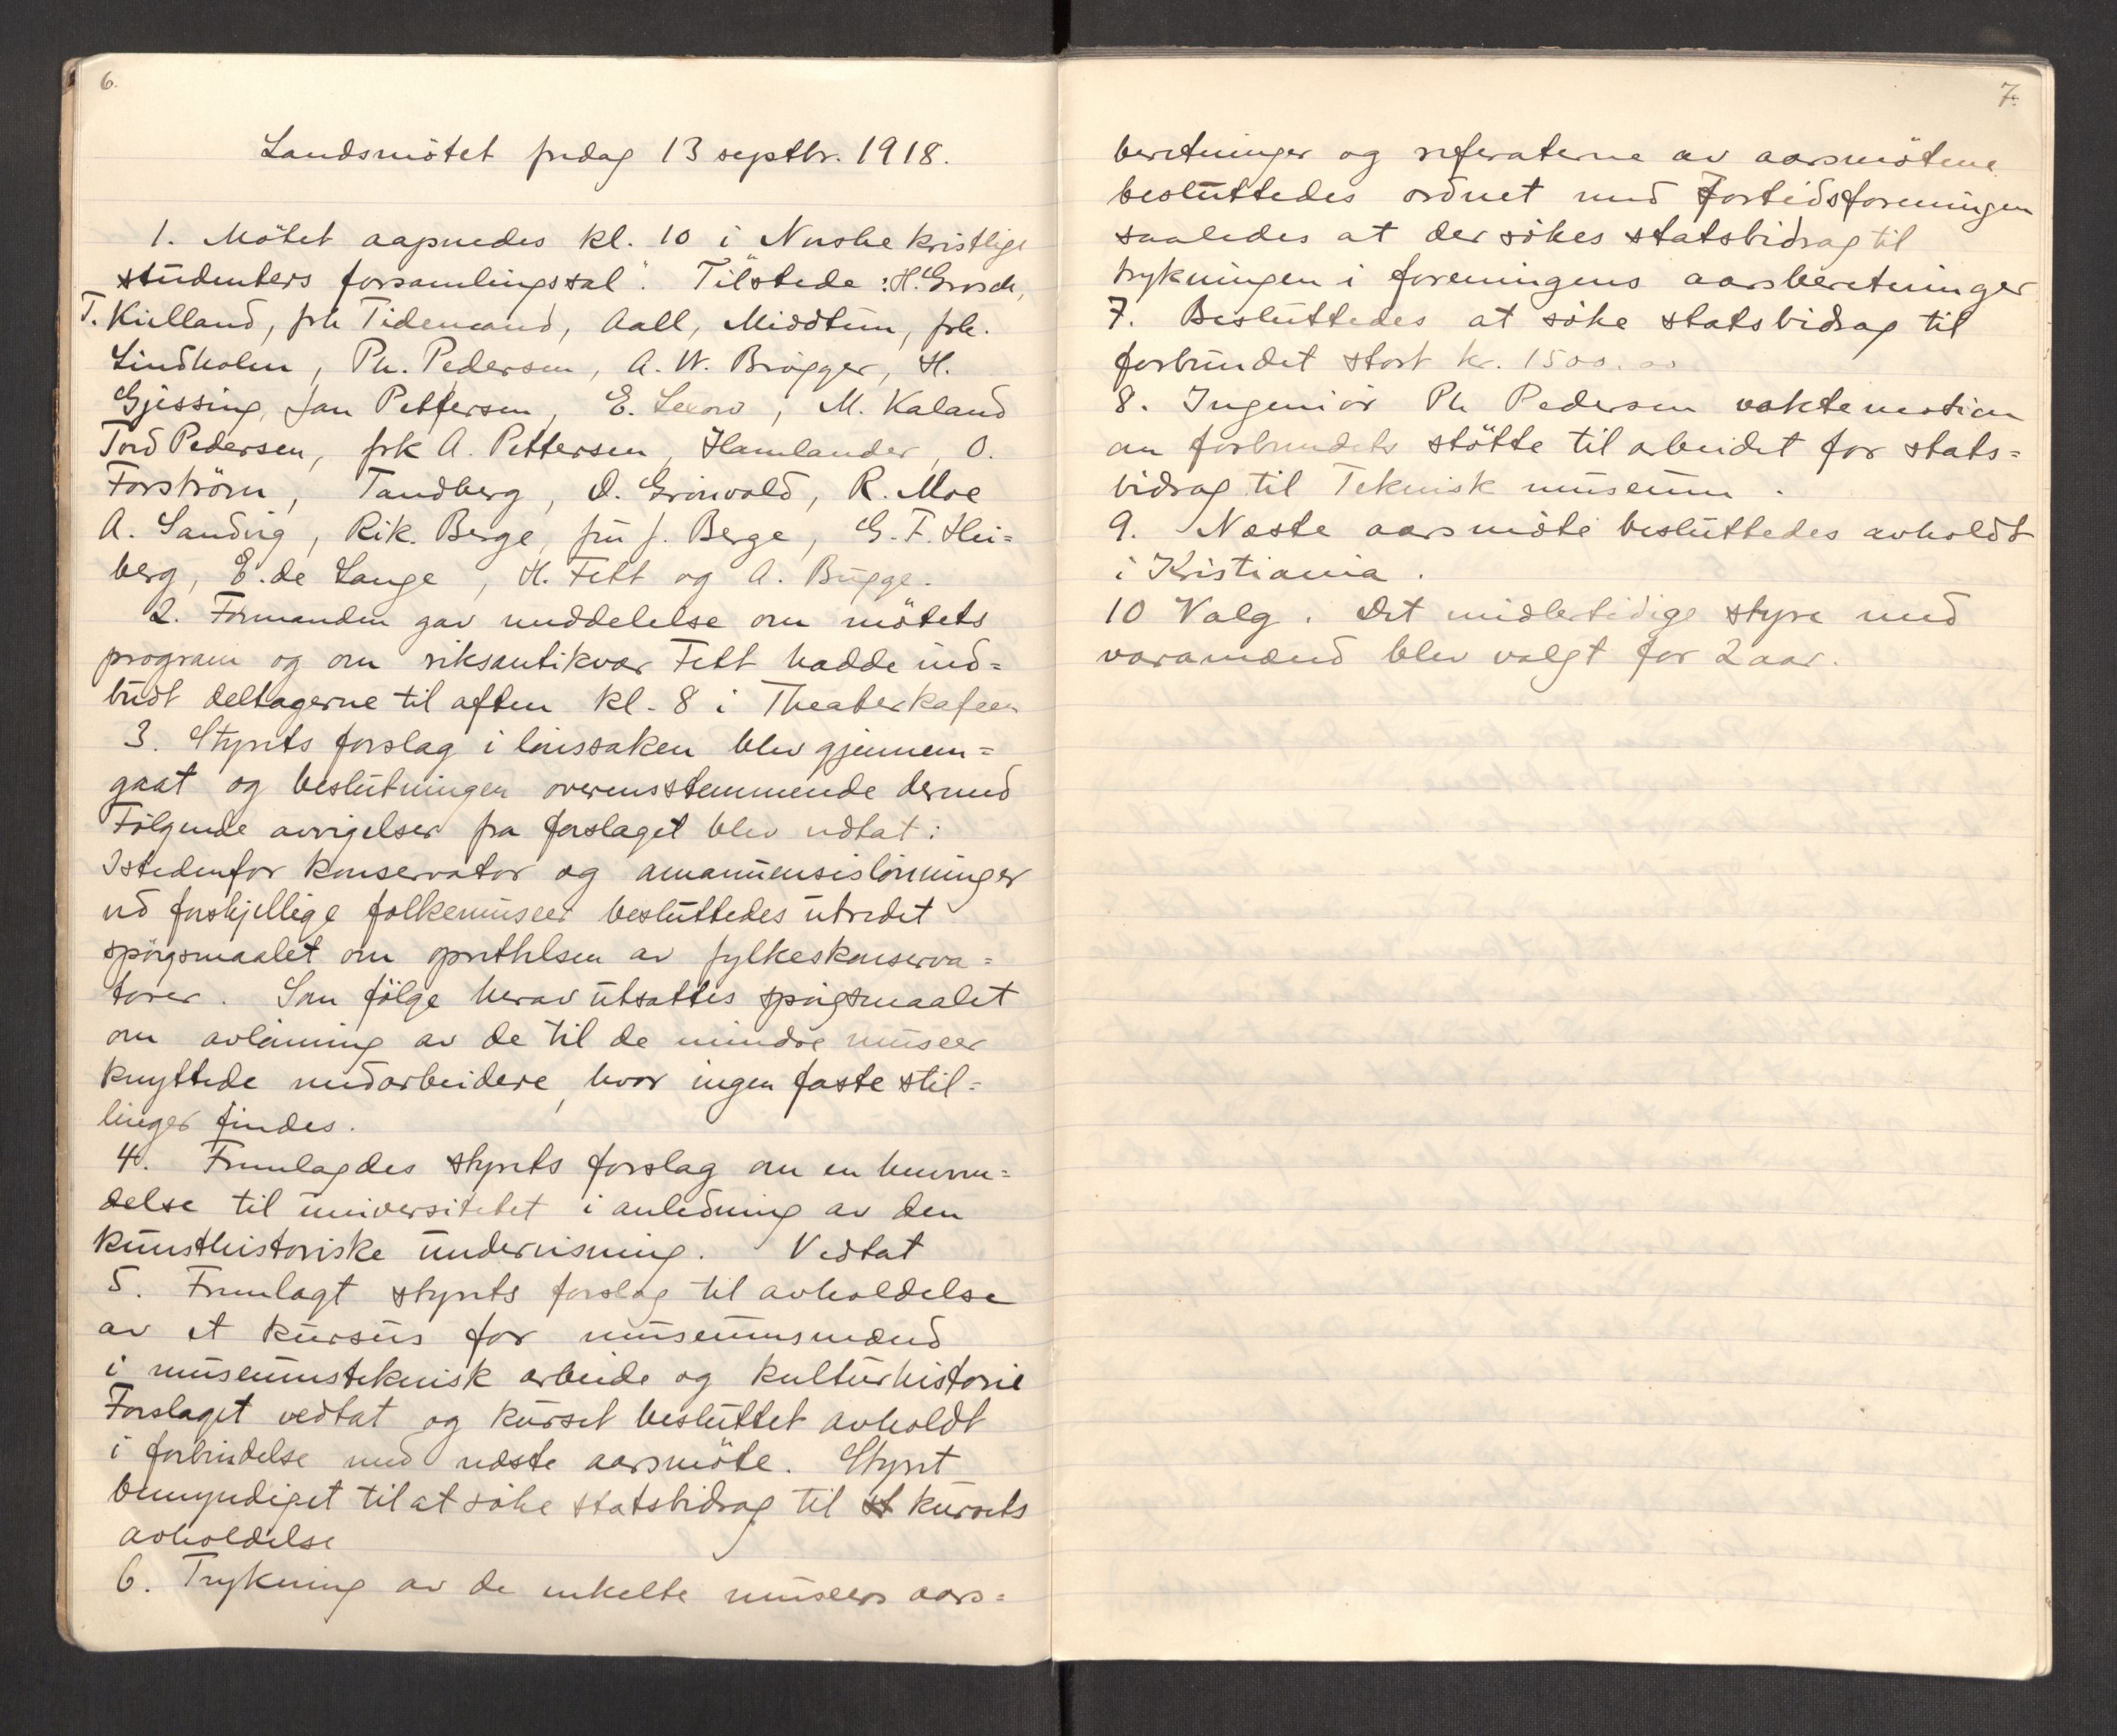 6.
Landsmötet fredag 13 septbr. 1918.
1. Mötet aapnedes kl. 10 i Norske kristlige
studenters forsamlingssal". Tilstede: H. Grosch,
T. Kielland, frk Tidemand, Aall, Middtun, frk.
Lindholm, Ph. Pedersen, A. W. Brøgger, H.
Gjessing, Jan Pettersen, E. Lexow, M. Kaland
Tord Pedersen, frk A. Pettersen, Hamlander, O.
Forström, Tandberg, D. Grönvold, R. Moe
A. Sandvig, Rik. Berge, fru J. Berge, G. F. Hei=
berg, E. de Lange, H. Fett og A. Bugge.
2. Formanden gav meddelelse om mötets
program og om riksantikvar Fett hadde ind=
budt deltagerne til aften kl. 8 i Theaterkafeen
3. Styrets forslag i lönssaken blev gjennem=
gaat og beslutningen overensstemmende dermed
Fölgende avvigelser fra forslaget blev vedtat:
Istedenfor konservator og amanuensislönninger
ved forskjellige folkemuseer besluttedes utredet
spörgsmaalet om oprettelsen av fylkeskonserva=
torer. Som fölge herav utsattes spörgsmaalet
om avlönning av de til de mindre museer
knyttede medarbeidere, hvor ingen faste stil=
linger findes.
4. Fremlagdes styrets forslag om en henven=
delse til universitetet i anledning av den
kunsthistoriske undervisning. Vedtat
5. Fremlagt styrets forslag til avholdelse
av et kursus for museumsmænd
i museumsteknisk arbeide og kulturhistorie
Forslaget vedtat og kurset besluttet avholdt
i forbindelse med næste aarsmöte. Styret
bemyndiget til at söke statsbidrag til kursets
avholdelse
6. Trykning av de enkelte museers aars=
7.
beretninger og referaterne av aarsmötene
besluttedes ordnet med Fortidsforeningen
saaledes at der sökes statsbidrag til
trykningen i foreningens aarsberetninger
7. Besluttedes at söke statsbidrag til
forbundet stort kr. 1500.00
8. Ingeniör Ph Pedersen vakte motion
om forbundets stötte til arbeidet for stats=
bidrag til Teknisk museum.
9. Næste aarsmöte besluttedes avholdt
i Kristiania.
10 Valg. Det midlertidige styre med
varamænd blev valgt for 2 aar.